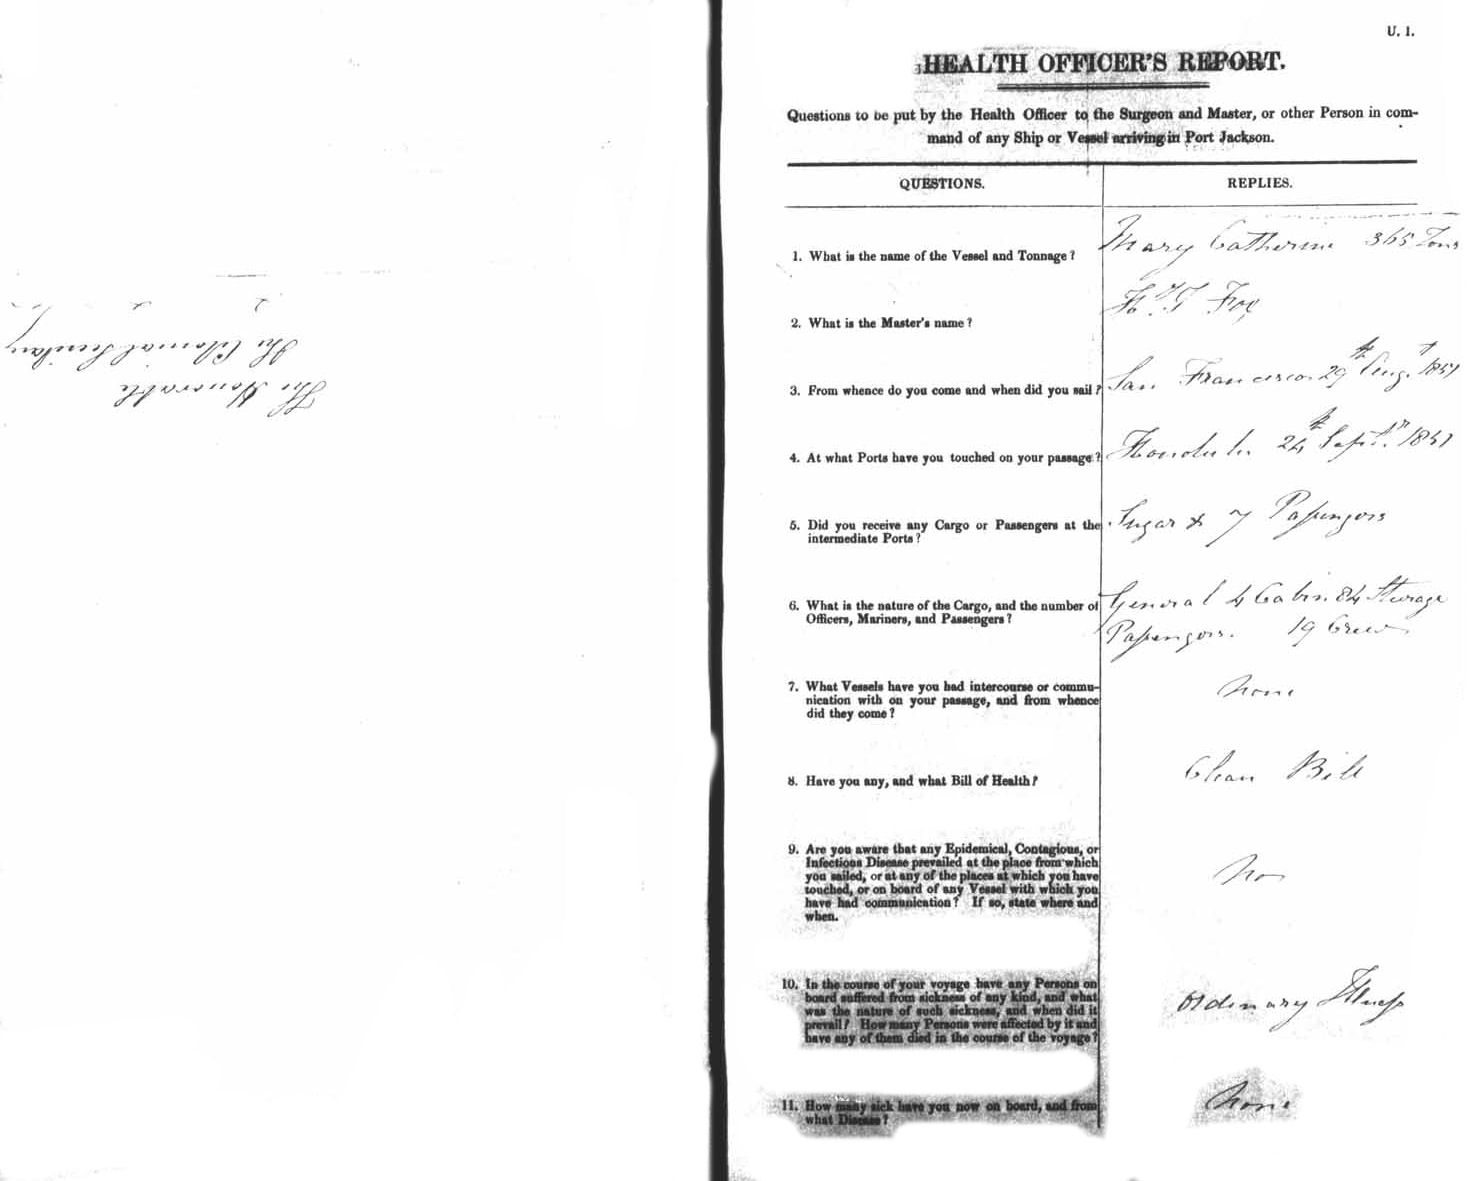 The Honorable
The Colonial Secretary
U. 1.
HEALTH OFFICER'S REPORT.
Questions to be put by the Health Officer to the Surgeon and Master, or other Person in com-
mand of any Ship or Vessel arriving in Port Jackson.
QUESTIONS. REPLIES.
1. What is the name of the Vessel and Tonnage? Mary Catherine 365 Tons
2. What is the Master's name? Fox
3. From whence do you come and when did you sail? San Francisco. 29th Augt. 1851
4. At what Ports have you touched on your passage? Honolulu 24th Septr. 1851
5. Did you receive any Cargo or Passengers at the
intermediate Ports? Sugar & 7 Passengers
6. What is the nature of the Cargo, and the number of General 4 Cabin 84 Sterage
Officers, Mariners, and Passengers? Passengers. 19 Crew
7. What Vessels have you had intercourse or commu-
nication with on your passage, and from whence
did they come? None
8. Have you any, and what Bill of Health? Clean Bill
9. Are you aware that any Epidemical, Contagious, or
Infectious Disease prevailed at the place from which
you sailed, or at any of the places at which you have
touched, or on board of any Vessel with which you
have had communication? If so, state where and
when. No
10. In the course of your voyage have any Persons on
board suffered from sickness of any kind, and what
was the nature of such sickness, and when did it
prevail? How many Persons were affected by it and
have any of them died in the course of the voyage? Ordinary Illness
11. How many sick have you now on board, and from
what Disease? None